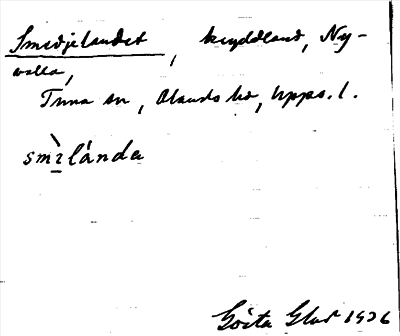 Smedjelandet, kryddland, Ny-
valla,
Tuna sn, Olands hd, Upps. l.
smìlánda
Gösta Glad 1926